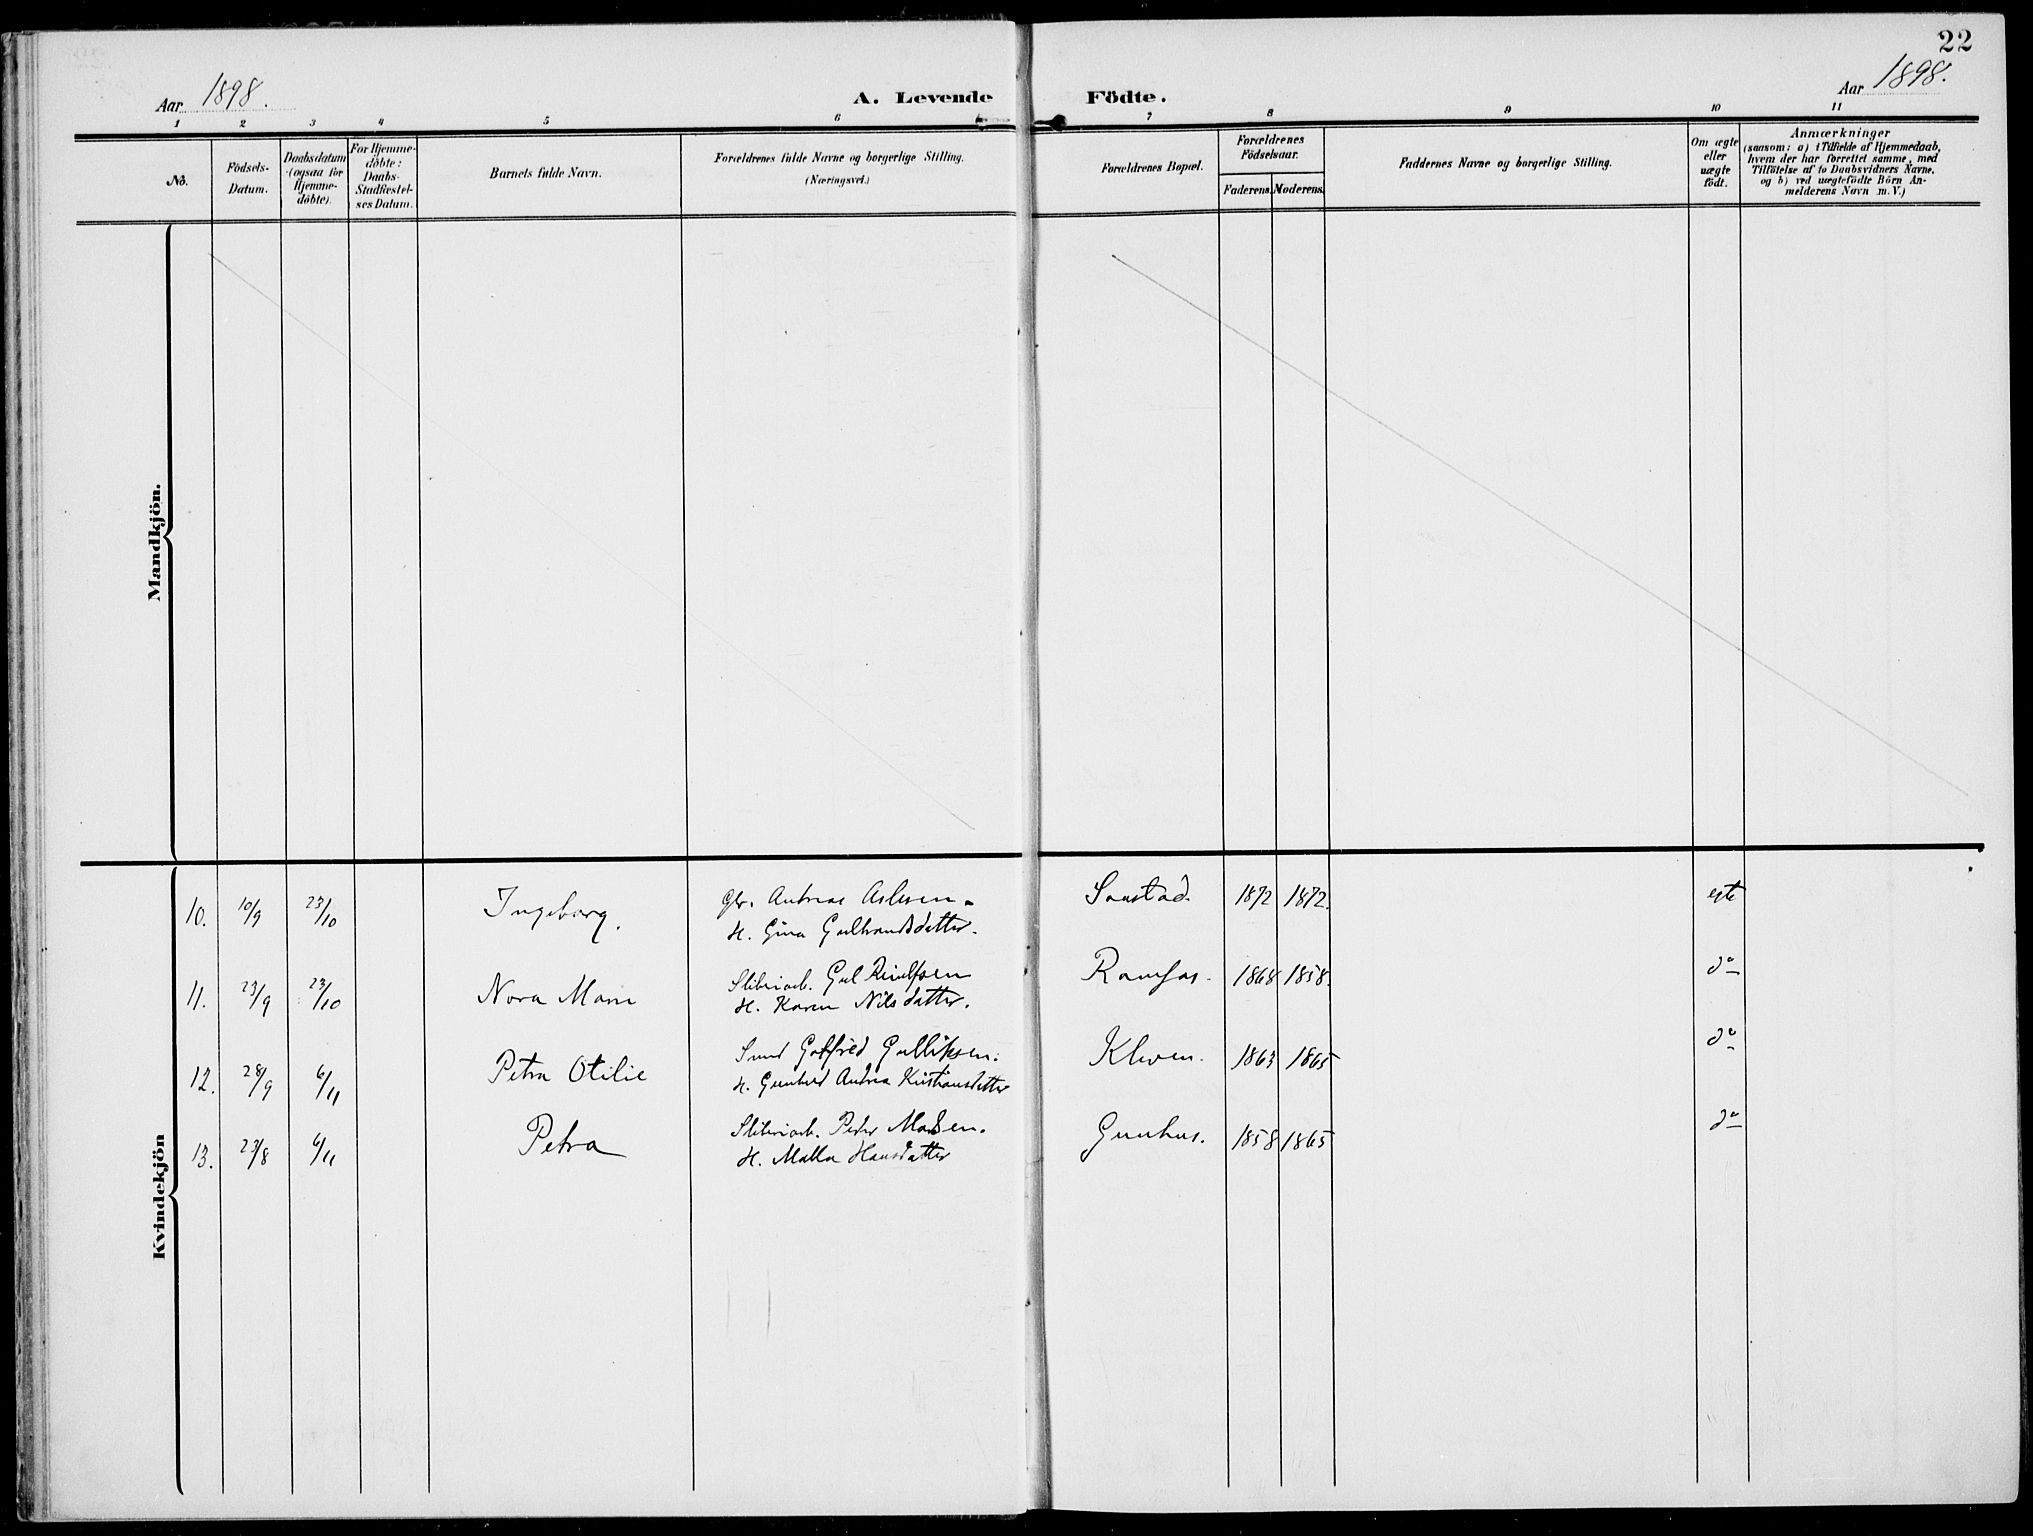 22
Aar 1898.
A. Levende Födte.
Aar 1898.
1 2 3 4 5 6 7 8 9 10 11
No.
Födsels-Datum.
Daabsdatum (ogsaa for Hjemme-döbte).
For Hjemme-döbte: Daabs-Stadfæstel-ses Datum.
Barnets fulde Navn.
Forældrenes fulde Navne og borgerlige Stilling.
(Næringsvei.)
Forældrenes Bopæl.
Forældrenes Födselsaar.
Faderens. Moderens.
Faddernes Navne og borgerlige Stilling.
Om ægte eller uægte födt.
Anmærkninger
(saasom: a) i Tilfælde af Hjemmedaab,
hvem der har forrettet samme, med
Tilföielse af to Daabsvidners Navne,
og b) ved uægtefödte Börn An-
melderens Navn m. V.)
Mandkjön.
Kvindekjön
10. 10/9 23/10 Ingeborg. Gbr. Andreas Aslesen. 1872 1872. egte
H. Gina Gulbrandsdatter.
11. 23/9 23/10 Nora Marie Sliberiarb. Gul 1868 1858. do
H. Karen Nilsdatter.
12. 28/9 6/11 Petra Otilie Smed Gotfred Gulliksen. Kleven. 1863 1865 do
H. Gunhild Andrea Kristiansdatter
13. 23/8 6/11 Petra Sliberiarb. Peder Madsen. Gunhus. 1858 1865 do
H. Mathea Hansdatter